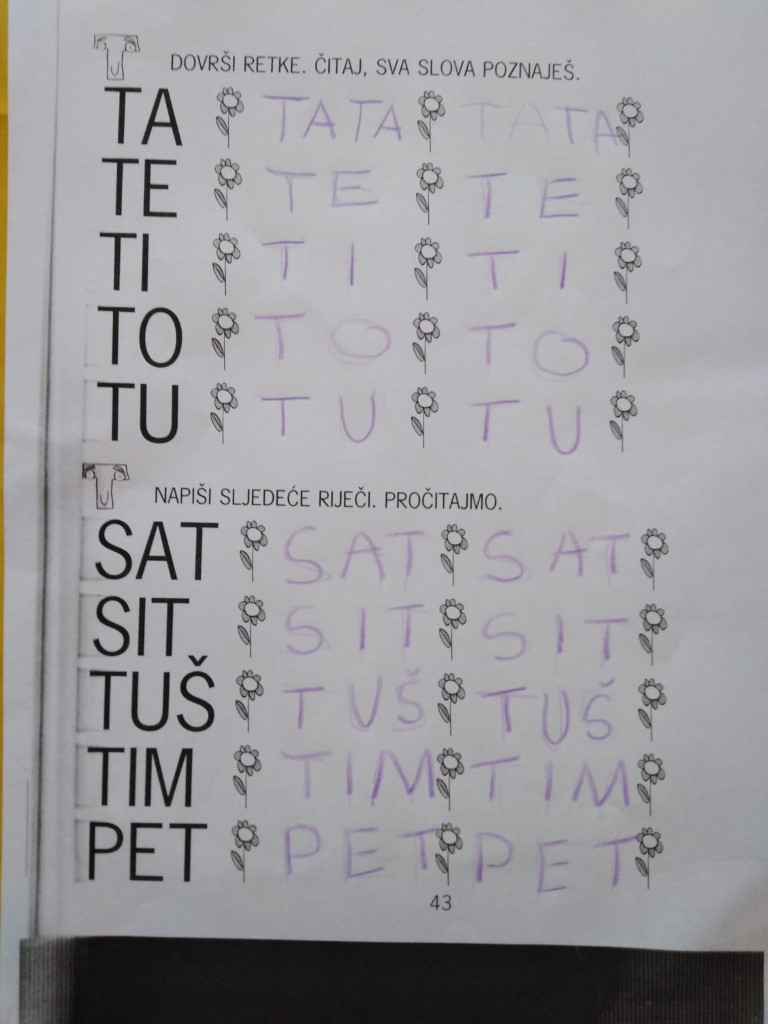 DOVRŠI RETKE. ČITAJ, SVA SLOVA POZNAJEŠ.
TA TATA TATA
TE TE TE
TI TI TI
TO TO TO
TU TU TU
NAPIŠI SLJEDEĆE RIJEČI. PROČITAJMO.
SAT SAT SAT
SIT SIT SIT
TUŠ TUŠ TUŠ
TIM TIM TIM
PET PET PET
43